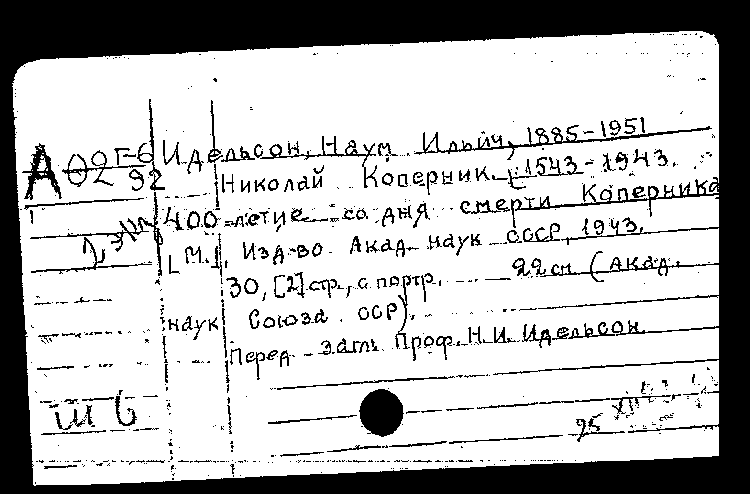 А 02 Г-6
92
Идельсон, Наум Ильич, 1885-1951
Николай Коперник. [1543-1943.
400-летие со дня смерти Коперника
[М.], Изд-во Акад. наук СССР, 1943.
30, [2] стр., с портр. 22 см (Акад.
наук Союза ССР).
Перед загл. Проф. Н. И. Идельсон.
Ш 6
25 XII 43